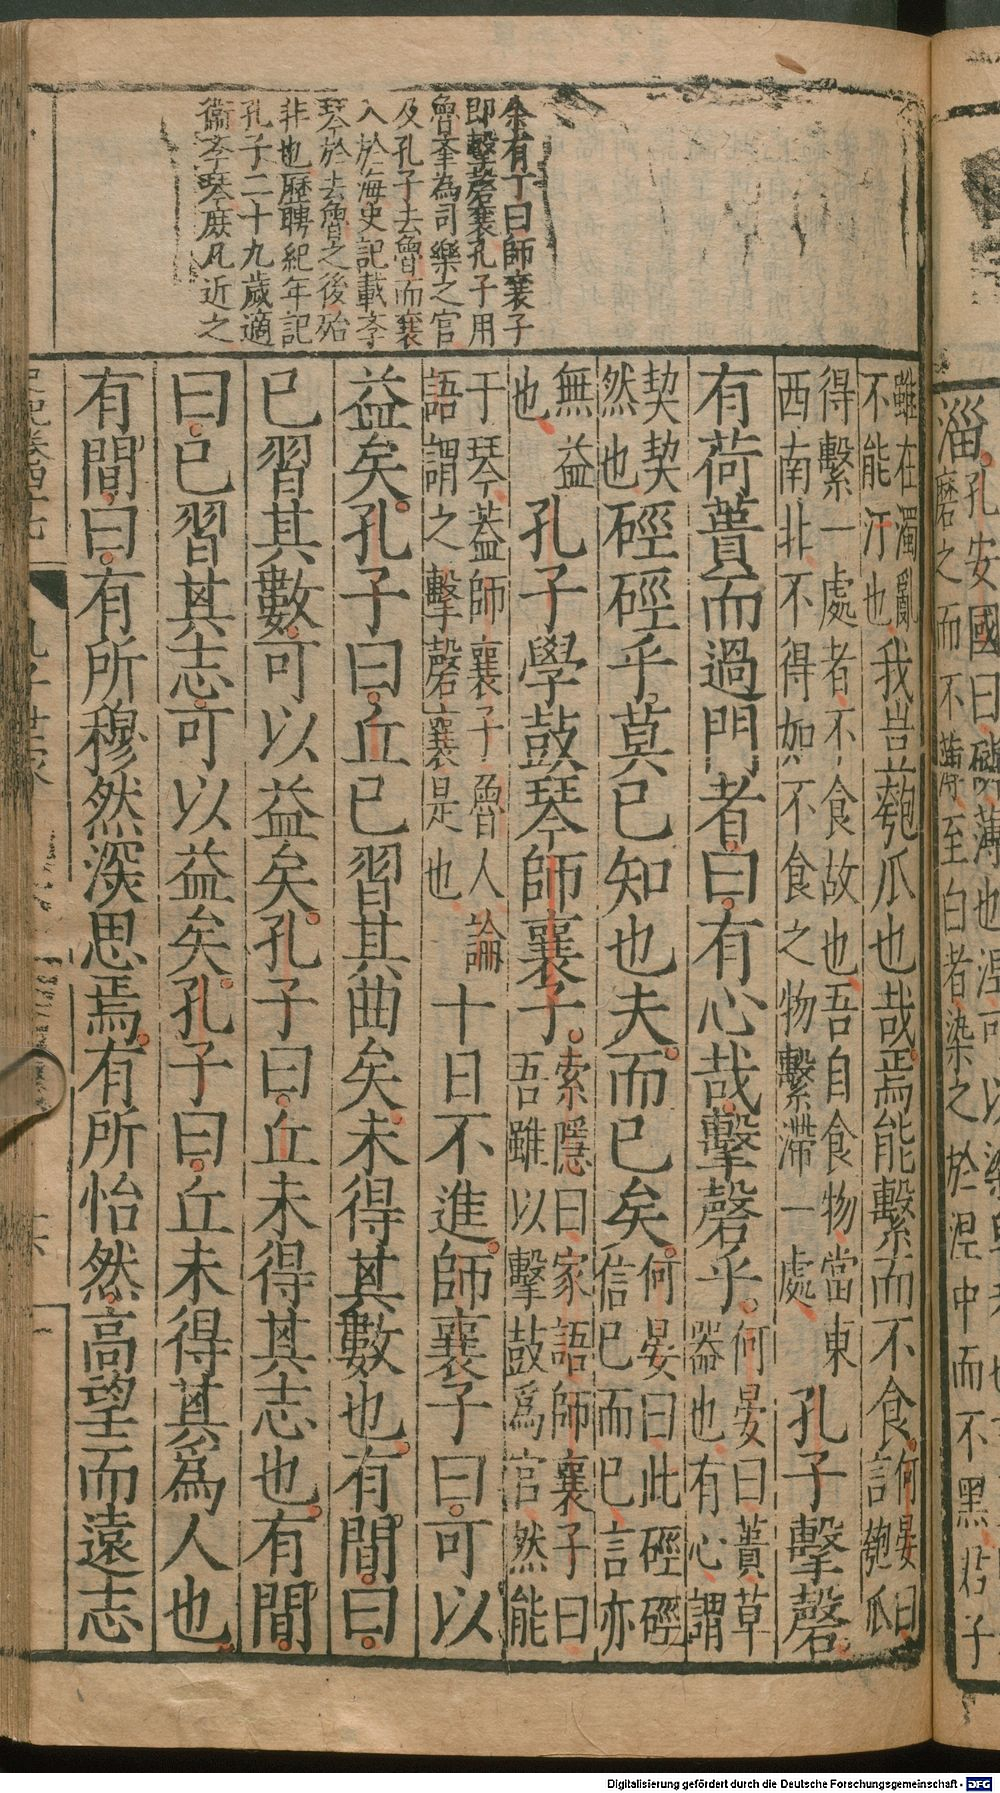 余有丁曰師襄子
即擊磬襄孔子用
魯李為司樂之官
及孔子去魯而襄
入於海史記載李
琴於去魯之後殆
非也歷聘紀年記
孔子二十九歲適
衞李琴庶凡近之
淄孔安國曰磷薄也涅可以染皂者
磨之而不薄至白者染之於涅中而不黑君子
雖在濁亂
不能汙也
我豈匏瓜也哉焉能繫而不食
何晏曰
言匏瓜
得繫一處者不食故也吾自食物當東
西南北不得如不食之物繫滯一處
孔子擊磬
有荷蕢而過門者曰有心哉擊磬乎
何晏曰蕢草
器也有心謂
契契
然也
硜硜乎莫已知也夫而已矣
何晏曰此硜硜
信已而已言亦
無益
也
孔子學鼓琴師襄子
索隱曰家語師襄子曰
吾雖以擊鼓爲官然能
于琴蓋師襄子魯人論
語謂之擊磬襄是也
十日不進師襄子曰可以
益矣孔子曰丘已習其曲矣未得其數也有間曰
已習其數可以益矣孔子曰丘未得其志也有間
曰已習其志可以益矣孔子曰丘未得其爲人也
有間曰有所穆然深思焉有所怡然高望而遠志
史記卷四十七
孔子世家
Digitalisierung gefördert durch die Deutsche Forschungsgemeinschaft - DFG